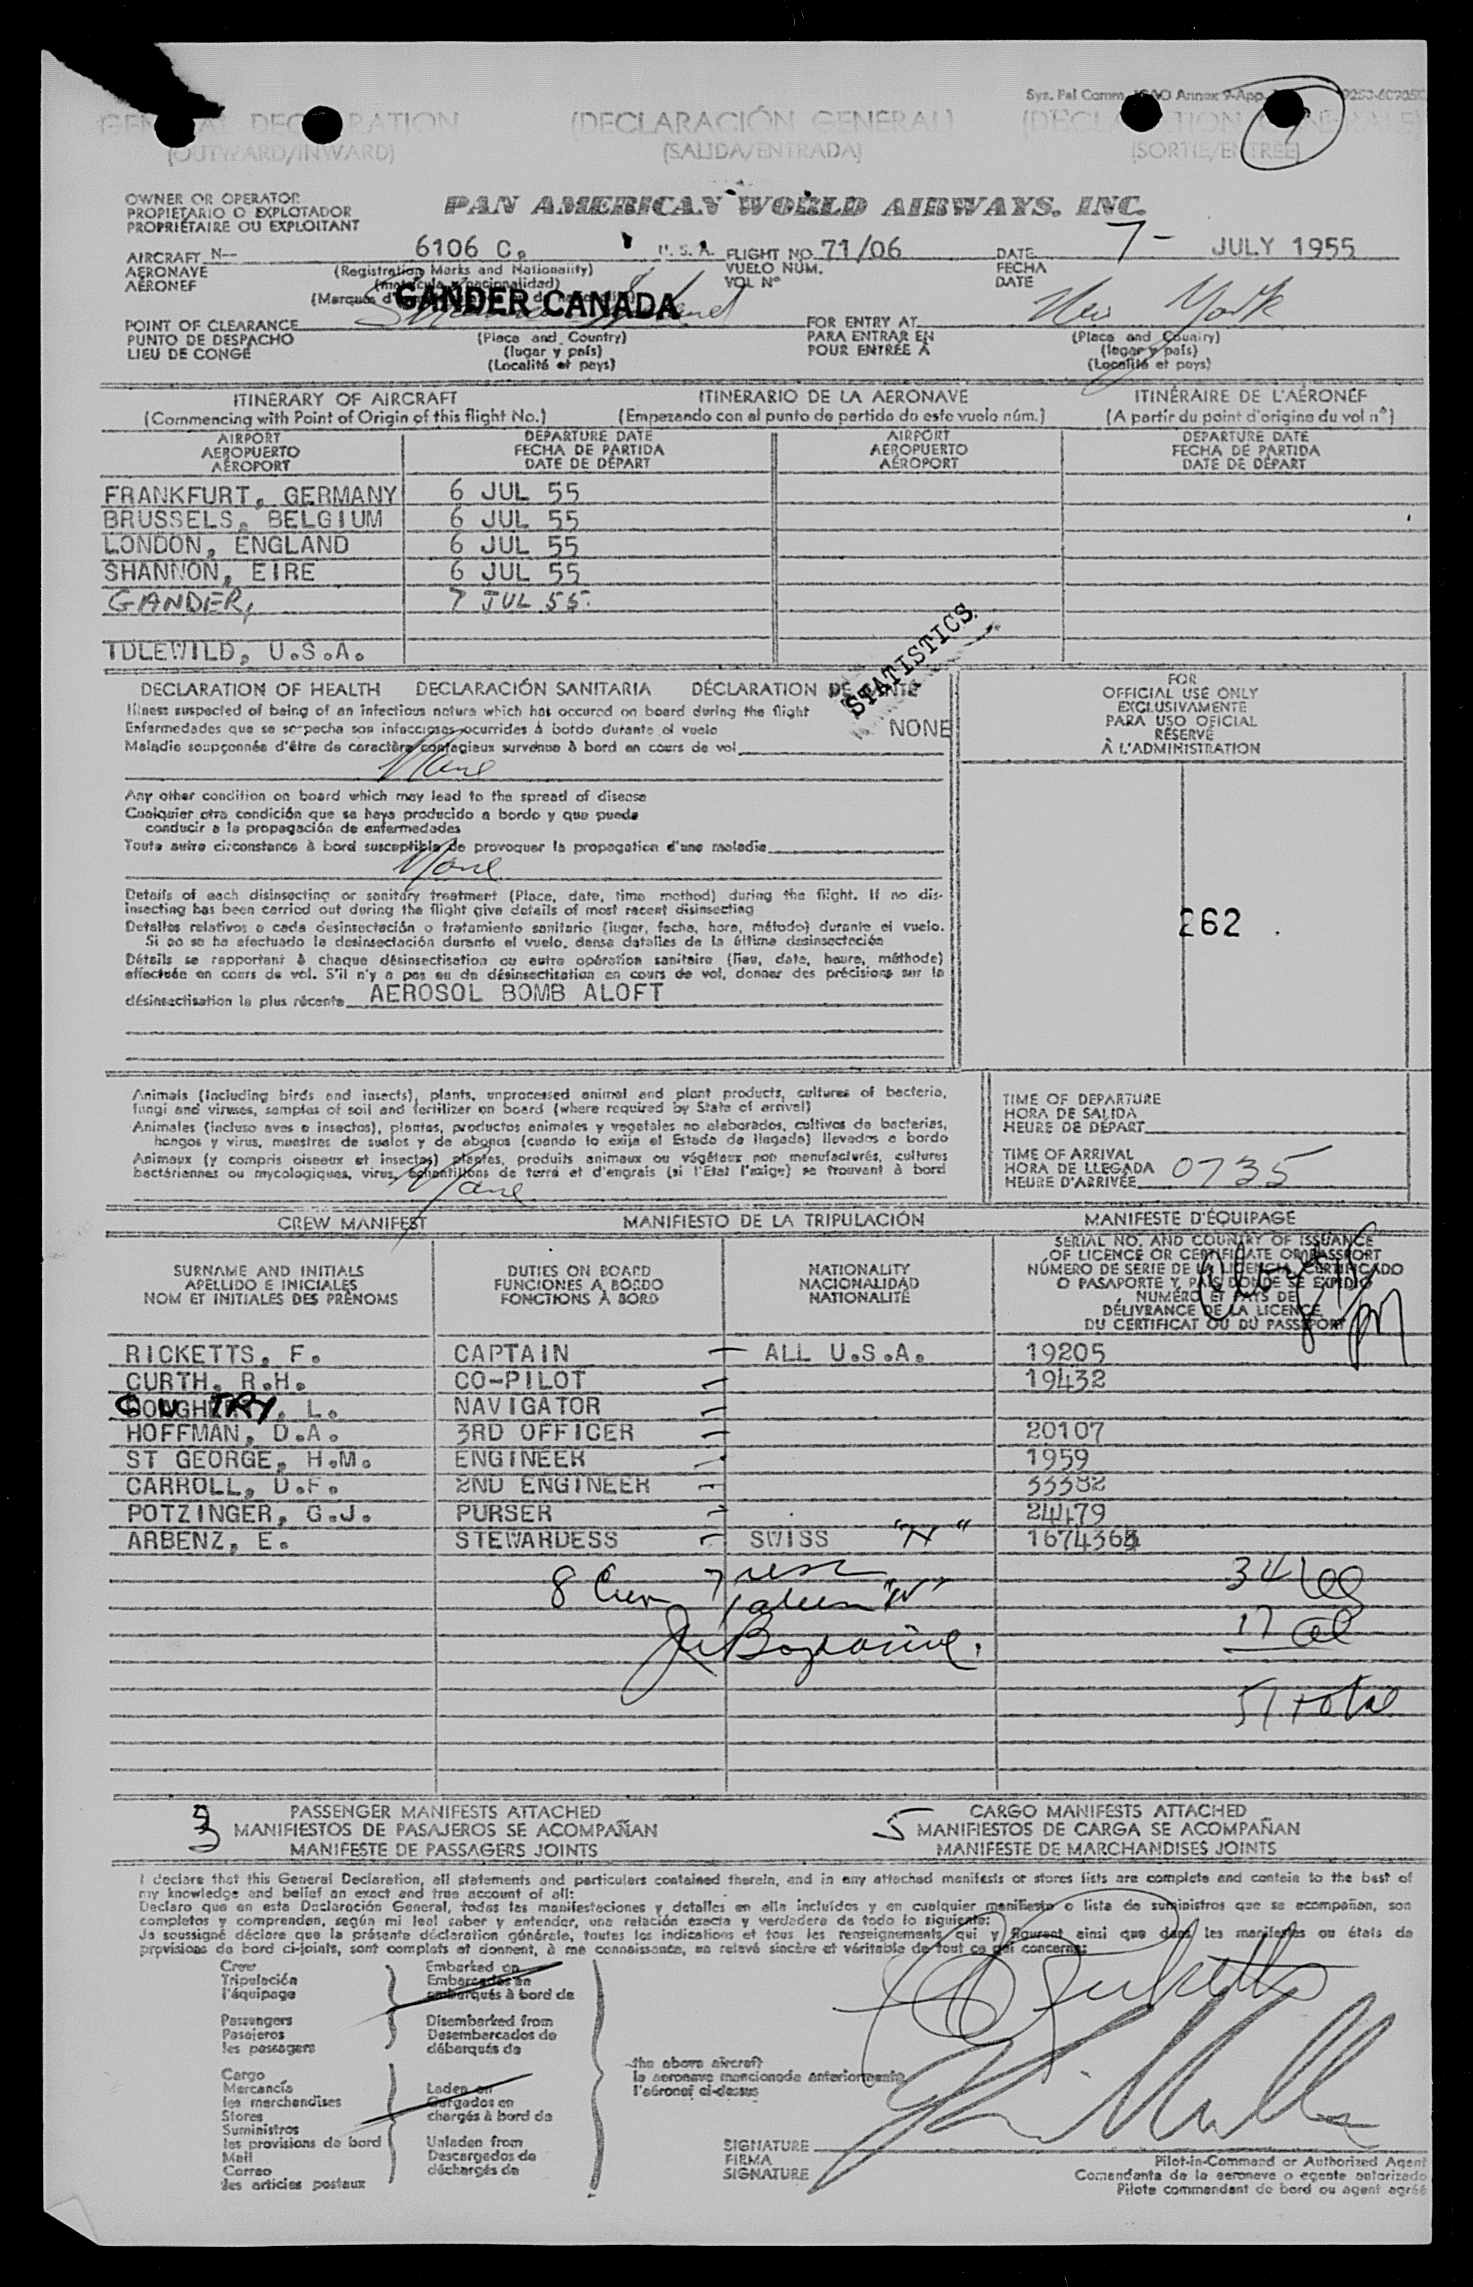 Sys. Pal Comm. ICAO Annex 9-App.
GENERAL DECLARATION (DECLARACIÓN GENERAL) (DÉCLARATION GÉNÉRALE)
(OUTWARD/INWARD) (SALIDA/ENTRADA) (SORTIE/ENTRÉE)
OWNER OR OPERATOR
PROPIETARIO O EXPLOTADOR
PROPRIÉTAIRE OU EXPLOITANT
PAN AMERICAN WORLD AIRWAYS, INC.
AIRCRAFT N-- 6106 C. U.S.A. FLIGHT NO. 71/06 DATE 7- JULY 1955
AERONAVE (Registration Marks and Nationality) VUELO NÚM. FECHA
AÉRONEF (matrícula y nacionalidad) VOL Nº DATE
GANDER CANADA
POINT OF CLEARANCE Shannon Ireland FOR ENTRY AT New York
PUNTO DE DESPACHO (Place and Country) PARA ENTRAR EN (Place and Country)
LIEU DE CONGÉ (lugar y país) POUR ENTRÉE À (lugar y país)
(Localité et pays) (Localité et pays)
ITINERARY OF AIRCRAFT ITINERARIO DE LA AERONAVE ITINÉRAIRE DE L'AÉRONEF
(Commencing with Point of Origin of this flight No.) (Empezando con el punto de partida de este vuelo núm.) (A partir du point d'origine du vol nº)
AIRPORT DEPARTURE DATE AIRPORT DEPARTURE DATE
AEROPUERTO FECHA DE PARTIDA AEROPUERTO FECHA DE PARTIDA
AÉROPORT DATE DE DÉPART AÉROPORT DATE DE DÉPART
FRANKFURT, GERMANY 6 JUL 55
BRUSSELS, BELGIUM 6 JUL 55
LONDON, ENGLAND 6 JUL 55
SHANNON, EIRE 6 JUL 55
GANDER, 7 JUL 55.
IDLEWILD, U.S.A.
STATISTICS
DECLARATION OF HEALTH DECLARACIÓN SANITARIA DÉCLARATION DE SANTÉ
Illness suspected of being of an infectious nature which has occured on board during the flight
Enfermedades que se sospecha son infecciosas ocurridas à bordo durante el vuelo NONE
Maladie soupçonnée d'être de caractère contagieux survenue à bord en cours de vol
None
Any other condition on board which may lead to the spread of disease
Cualquier otra condición que se haya producido a bordo y que puede
conducir a la propagación de enfermedades
Toute autre circonstance à bord susceptible de provoquer la propagation d'une maladie
None
Details of each disinsecting or sanitary treatment (Place, date, time method) during the flight. If no dis-
insecting has been carried out during the flight give details of most recent disinsecting
Detalles relativos a cada desinsectación o tratamiento sanitario (lugar, fecha, hora, método) durante el vuelo.
Si no se ha efectuado la desinsectación durante el vuelo, dense detalles de la última desinsectación
Détails se rapportant à chaque désinsectisation ou autre opération sanitaire (lieu, date, heure, méthode)
effectuée en cours de vol. S'il n'y a pas eu de désinsectisation en cours de vol, donner des précisions sur la
désinsectisation la plus récente AEROSOL BOMB ALOFT
FOR
OFFICIAL USE ONLY
EXCLUSIVAMENTE
PARA USO OFICIAL
RÉSERVÉ
À L'ADMINISTRATION
262
Animals (including birds and insects), plants, unprocessed animal and plant products, cultures of bacteria,
fungi and viruses, samples of soil and fertilizer on board (where required by State of arrival)
Animales (incluso aves e insectos), plantas, productos animales y vegetales no elaborados, cultivos de bacterias,
hongos y virus, muestras de suelos y de abonos (cuando lo exija el Estado de llegada) llevados a bordo
Animaux (y compris oiseaux et insectes) plantes, produits animaux ou végétaux non manufacturés, cultures
bactériennes ou mycologiques, virus, échantillons de terre et d'engrais (si l'Etat l'exige) se trouvant à bord
None
TIME OF DEPARTURE
HORA DE SALIDA
HEURE DE DÉPART
TIME OF ARRIVAL
HORA DE LLEGADA 0735
HEURE D'ARRIVÉE
CREW MANIFEST MANIFIESTO DE LA TRIPULACIÓN MANIFESTE D'ÉQUIPAGE
SURNAME AND INITIALS DUTIES ON BOARD NATIONALITY
APELLIDO E INICIALES FUNCIONES A BORDO NACIONALIDAD
NOM ET INITIALES DES PRÉNOMS FONCTIONS À BORD NATIONALITÉ
SERIAL NO. AND COUNTRY OF ISSUANCE
OF LICENCE OR CERTIFICATE OR PASSPORT
NÚMERO DE SERIE DE LA LICENCIA, CERTIFICADO
O PASAPORTE Y PAÍS DONDE SE EXPIDIÓ
NUMÉRO ET PAYS DE
DÉLIVRANCE DE LA LICENCE
DU CERTIFICAT OU DU PASSEPORT
RICKETTS, F. CAPTAIN ALL U.S.A. 19205
CURTH, R.H. CO-PILOT 19432
GUTRY, L. NAVIGATOR
HOFFMAN, D.A. 3RD OFFICER 20107
ST GEORGE, H.M. ENGINEER 1959
CARROLL, D.F. 2ND ENGINEER 33382
POTZINGER, G.J. PURSER 24479
ARBENZ, E. STEWARDESS SWISS "N" 1674364
8 Crew 7 usc 34
1 alien "N"
17
51 total
3 PASSENGER MANIFESTS ATTACHED 5 CARGO MANIFESTS ATTACHED
MANIFIESTOS DE PASAJEROS SE ACOMPAÑAN MANIFIESTOS DE CARGA SE ACOMPAÑAN
MANIFESTE DE PASSAGERS JOINTS MANIFESTE DE MARCHANDISES JOINTS
I declare that this General Declaration, all statements and particulars contained therein, and in any attached manifests or stores lists are complete and contain to the best of
my knowledge and belief an exact and true account of all:
Declaro que en esta Declaración General, todas las manifestaciones y detalles en ella incluídos y en cualquier manifiesto o lista de suministros que se acompañan, son
completos y comprenden, según mi leal saber y entender, una relación exacta y verdadera de todo lo siguiente:
Je soussigné déclare que la présente déclaration générale, toutes les indications et tous les renseignements qui y figurent ainsi que dans les manifestes ou états de
provisions de bord ci-joints, sont complets et donnent, à ma connaissance, un relevé sincère et véritable de tout ce qui concerne:
Crew Embarked on
Tripulación Embarcados en
l'équipage embarqués à bord de
Passengers Disembarked from
Pasajeros Desembarcados de
les passagers débarqués de
the above aircraft
la aeronave mencionada anteriormente
l'aéronef ci-dessus
Cargo
Mercancía Laden on
les marchandises Cargados en
Stores chargés à bord de
Suministros
les provisions de bord Unladen from
Mail Descargados de
Correo déchargés de
les articles postaux
SIGNATURE
FIRMA
SIGNATURE
Pilot-in-Command or Authorized Agent
Comandante de la aeronave o agente autorizado
Pilote commandant de bord ou agent agréé